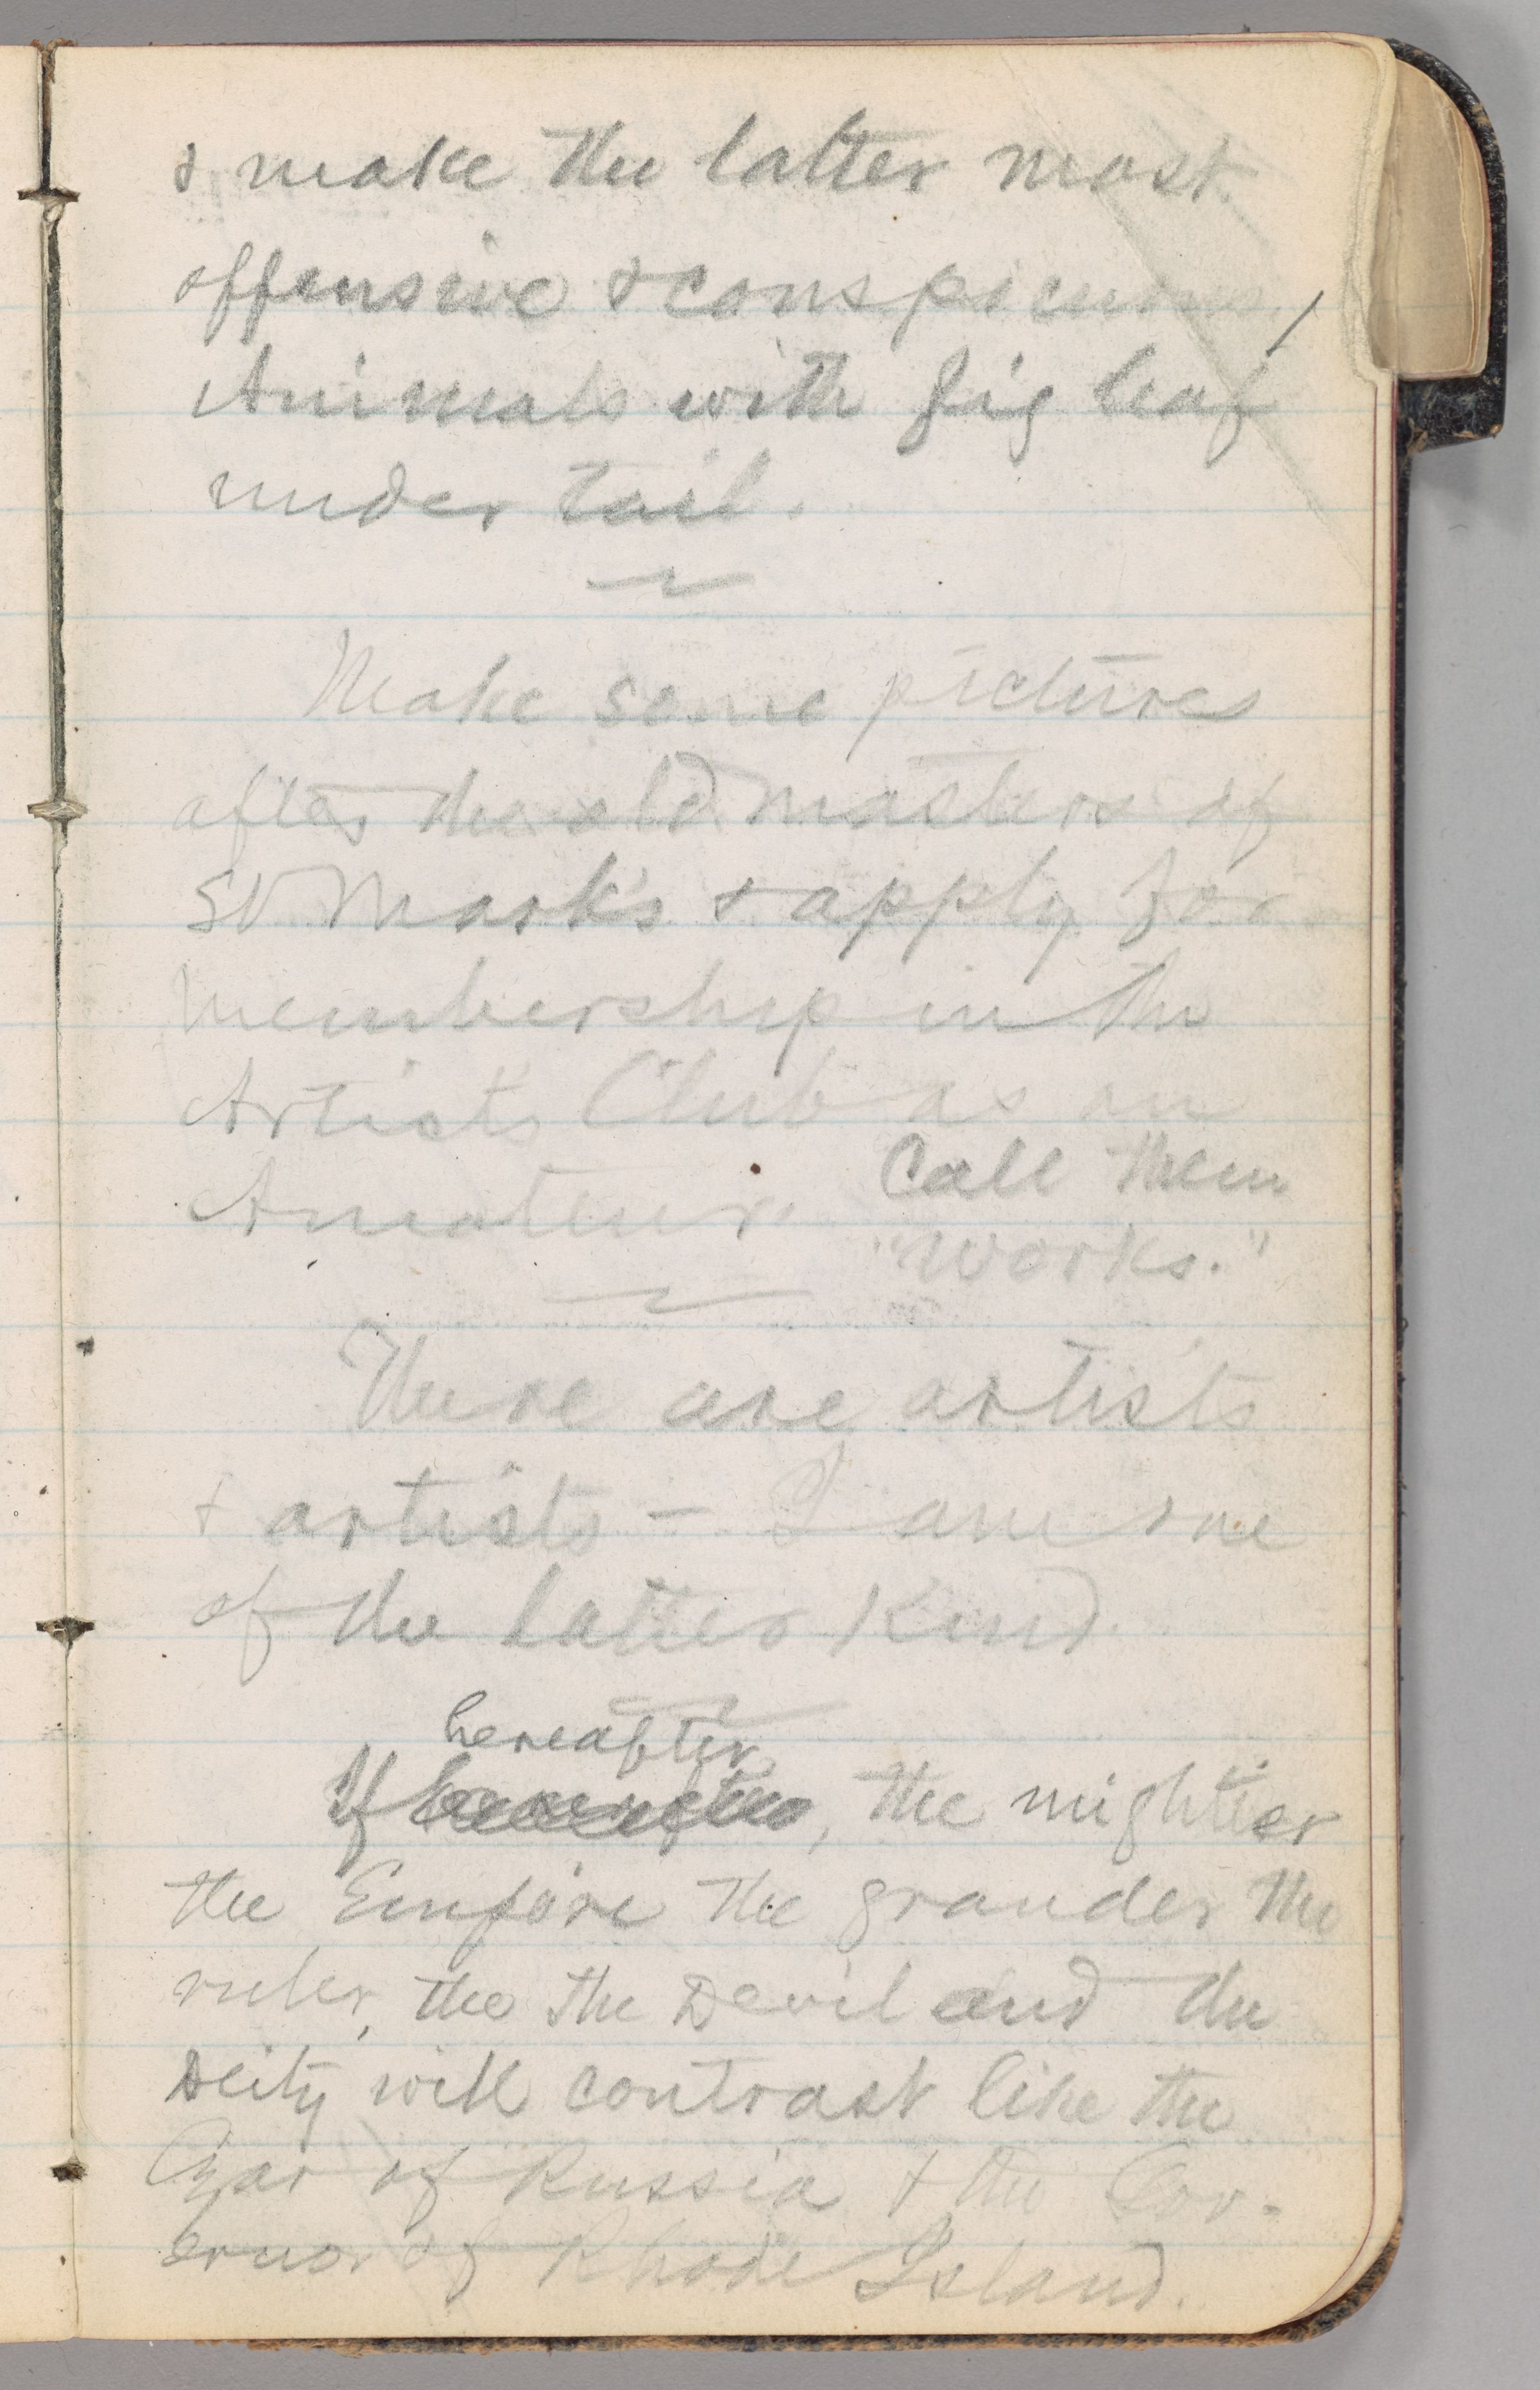 & make the latter most
offensive & conspicuous,
Animals with fig leaf
under tail.
Make some pictures
after the old masters of
St Mark's & apply for
membership in the
Artists Club as an
Amateur. Call them
"works."
There are artists
& artists — I am one
of the latter kind.
hereafter
If , the mightier
the Empire the grander the
ruler, the the Devil and the
Deity will contrast like the
Czar of Russia & the Gov-
ernor of Rhode Island.